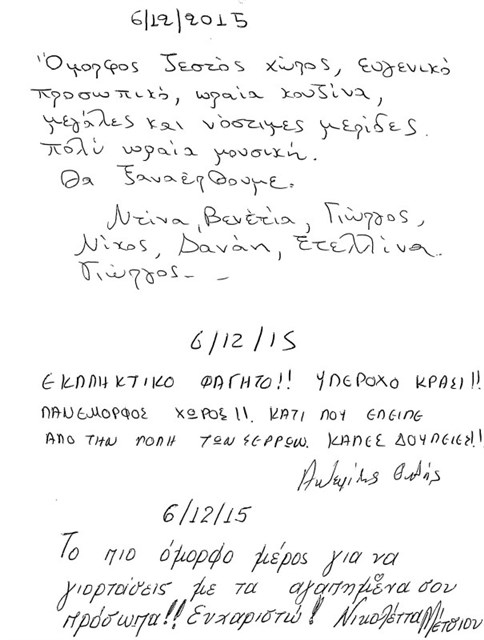 6/12/2015
Όμορφος ζεστός χώρος, ευγενικό
προσωπικό, ωραία κουζίνα,
μεγάλες και νόστιμες μερίδες.
πολύ ωραία μουσική.
Θα ξαναέρθουμε.
Ντίνα, Βενετία, Γιώργος,
Νίκος, Δανάη, Στελλίνα.
Γιώργος - -
6/12/15
ΕΚΠΛΗΚΤΙΚΟ ΦΑΓΗΤΟ!! ΥΠΕΡΟΧΟ ΚΡΑΣΙ!!
ΠΑΝΕΜΟΡΦΟΣ ΧΩΡΟΣ!!. ΚΑΤΙ ΠΟΥ ΕΛΕΙΠΕ
ΑΠΟ ΤΗΝ ΠΟΛΗ ΤΩΝ ΣΕΡΡΩΝ. ΚΑΛΕΣ ΔΟΥΛΕΙΕΣ!!
6/12/15
Το πιο όμορφο μέρος για να
γιορτάσεις με τα αγαπημένα σου
πρόσωπα!! Ευχαριστώ! Νικολέττα Μετσίου